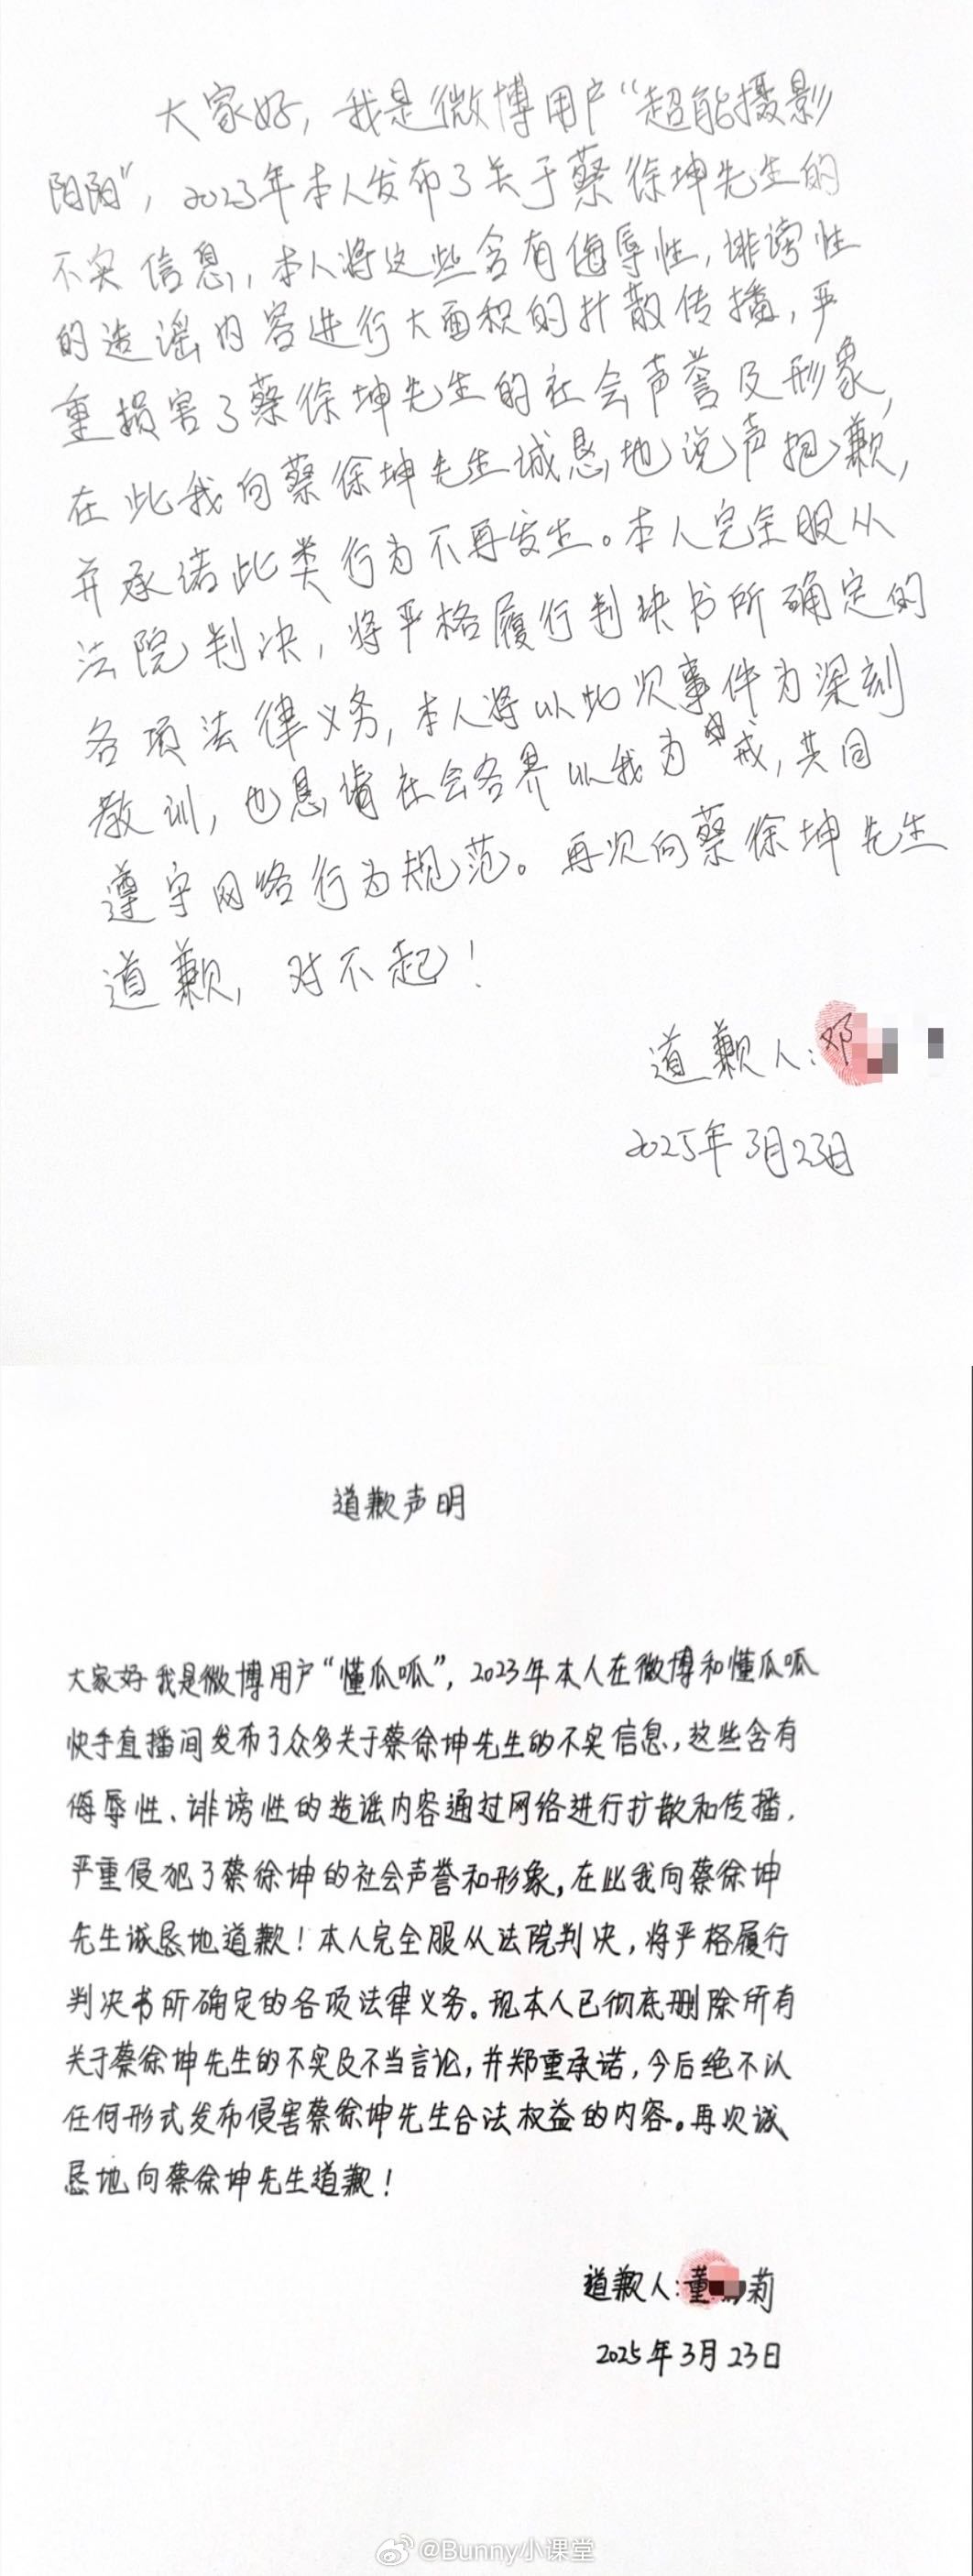 大家好，我是微博用户“超能摄影
阳阳”，2023年本人发布了关于蔡徐坤先生的
不实信息，本人将这些含有侮辱性，诽谤性
的造谣内容进行大面积的扩散传播，严
重损害了蔡徐坤先生的社会声誉及形象，
在此我向蔡徐坤先生诚恳地说声抱歉，
并承诺此类行为不再发生。本人完全服从
法院判决，将严格履行判决书所确定的
各项法律义务，本人将以此次事件为深刻
教训，也恳请社会各界以我为戒，共同
遵守网络行为规范。再次向蔡徐坤先生
道歉，对不起！
道歉人：邓
2025年3月23日
道歉声明
大家好我是微博用户“懂瓜呱”，2023年本人在微博和懂瓜呱
快手直播间发布了众多关于蔡徐坤先生的不实信息，这些含有
侮辱性、诽谤性的造谣内容通过网络进行扩散和传播，
严重侵犯了蔡徐坤的社会声誉和形象，在此我向蔡徐坤
先生诚恳地道歉！本人完全服从法院判决，将严格履行
判决书所确定的各项法律义务。现本人已彻底删除所有
关于蔡徐坤先生的不实及不当言论，并郑重承诺，今后绝不以
任何形式发布侵害蔡徐坤先生合法权益的内容。再次诚
恳地向蔡徐坤先生道歉！
道歉人：董 莉
2025年3月23日
@Bunny小课堂